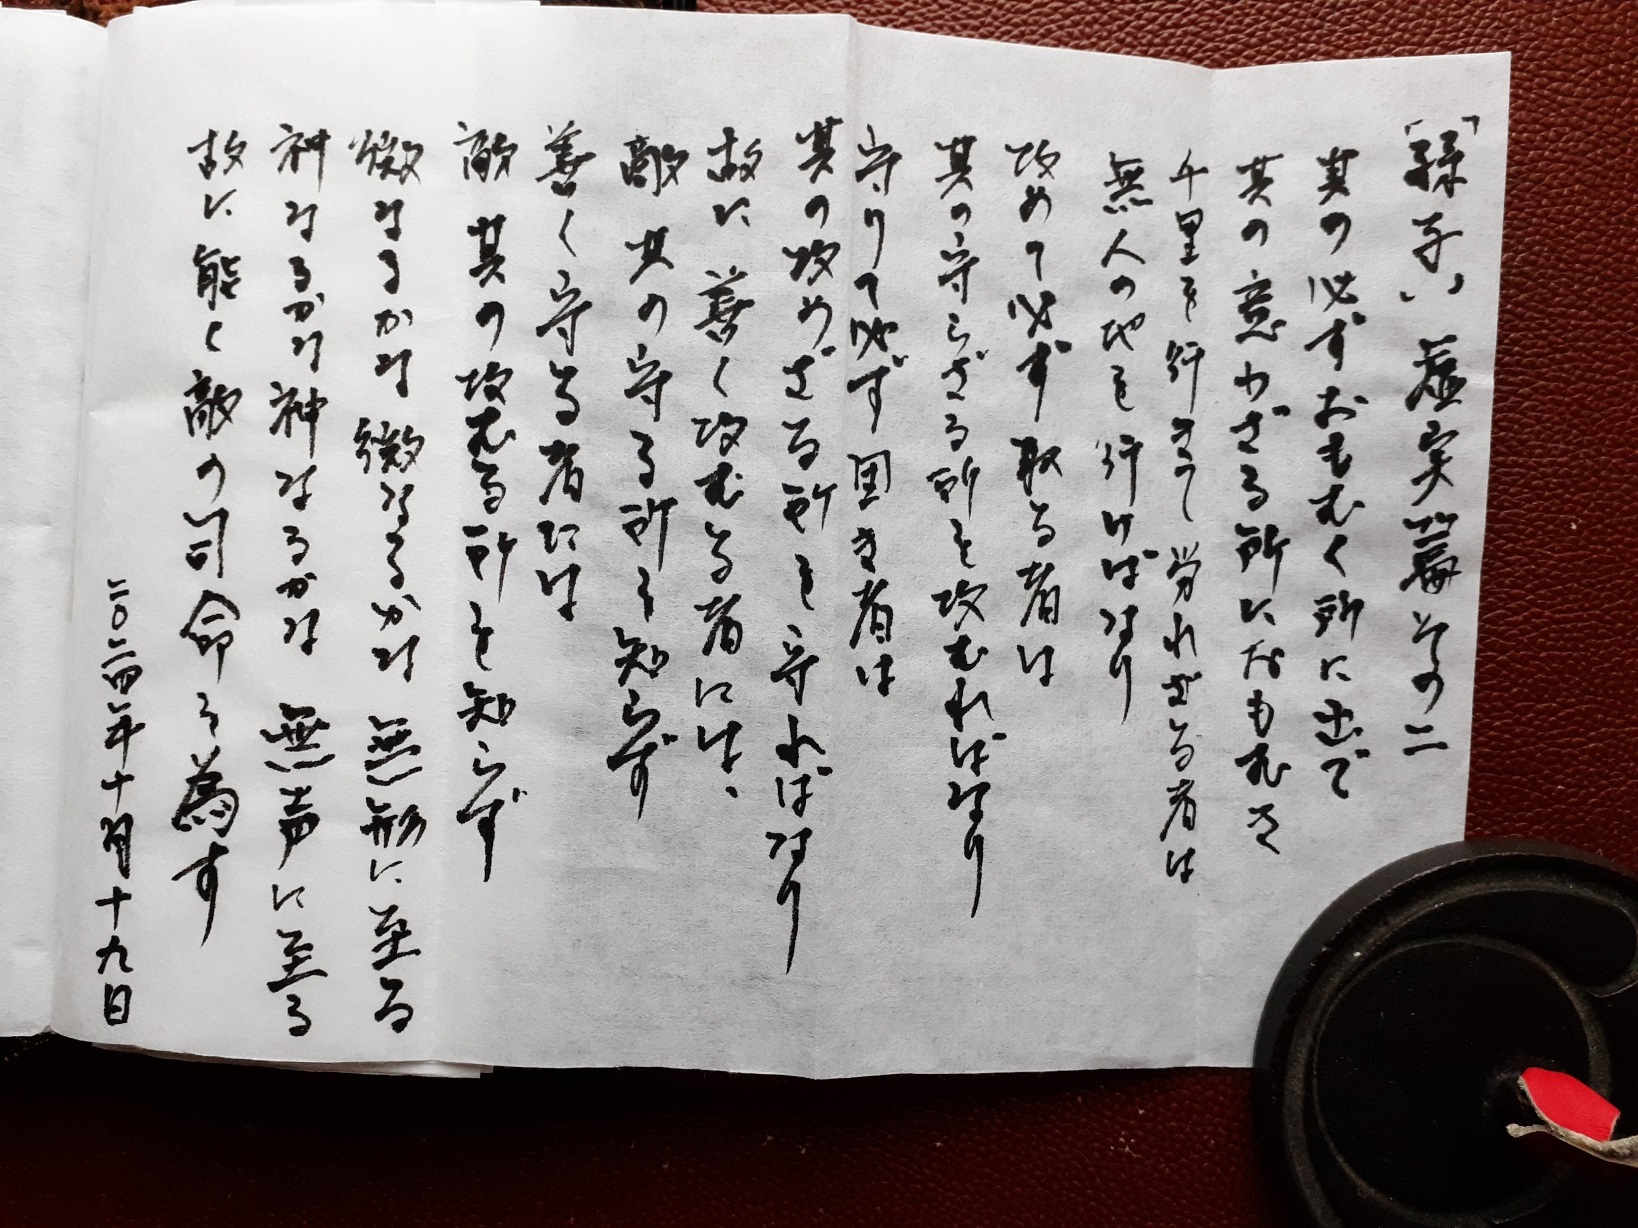 「孫子」 虚実篇 その二
其の必ずおもむく所に出で
其の意わざる所におもむき
千里を行きて労れざる者は
無人の地を行けばなり
攻めて必ず取る者は
其の守らざる所を攻むればなり
守りて必ず固き者は
其の攻めざる所を守ればなり
故に 善く攻むる者には、
敵 其の守る所を知らず
善く守る者には
敵 其の攻むる所を知らず
微なるかな 微なるかな 無形に至る
神なるかな 神なるかな 無声に至る
故に能く敵の司命を為す
二〇二四年十月十九日